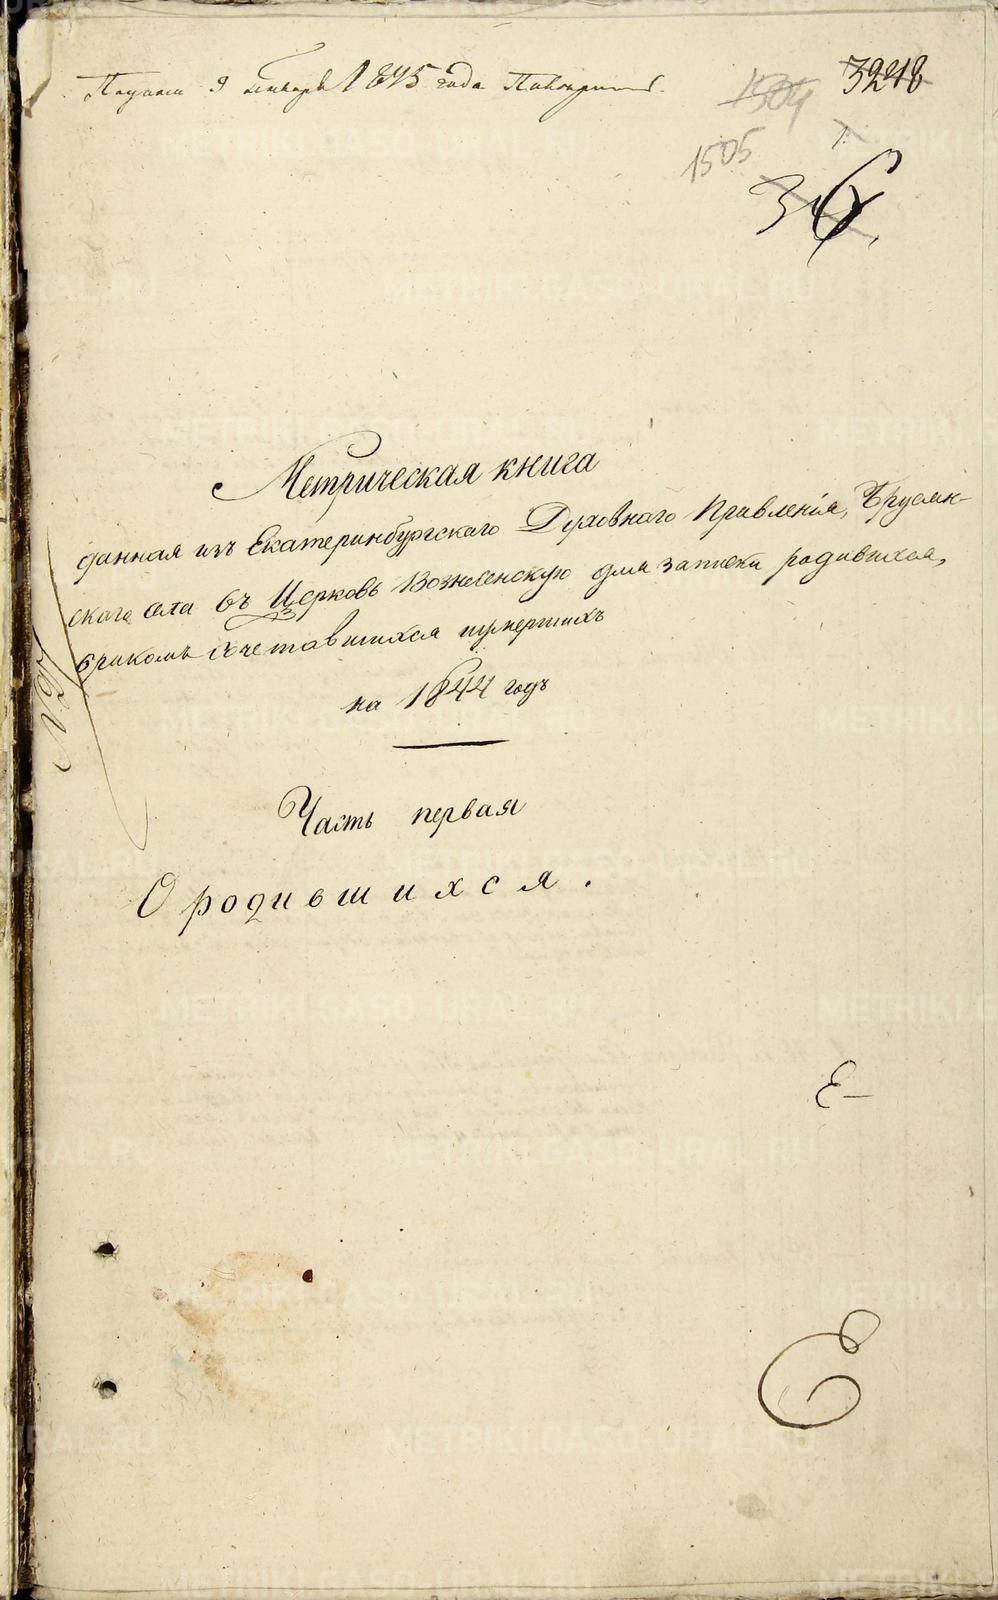 9 января 1845 года
1504
3248
1505
36.
Метрическая книга
данная изъ Екатеринбургскаго Духовнаго Правленія, Бруснян-
скаго села въ Церковь Вознесенскую для записки родившихся,
бракомъ сочетавшихся и умершихъ
на 1844 годъ
Часть первая
О родившихся.
Е
Е
METRIKI.GASO-URAL.RU